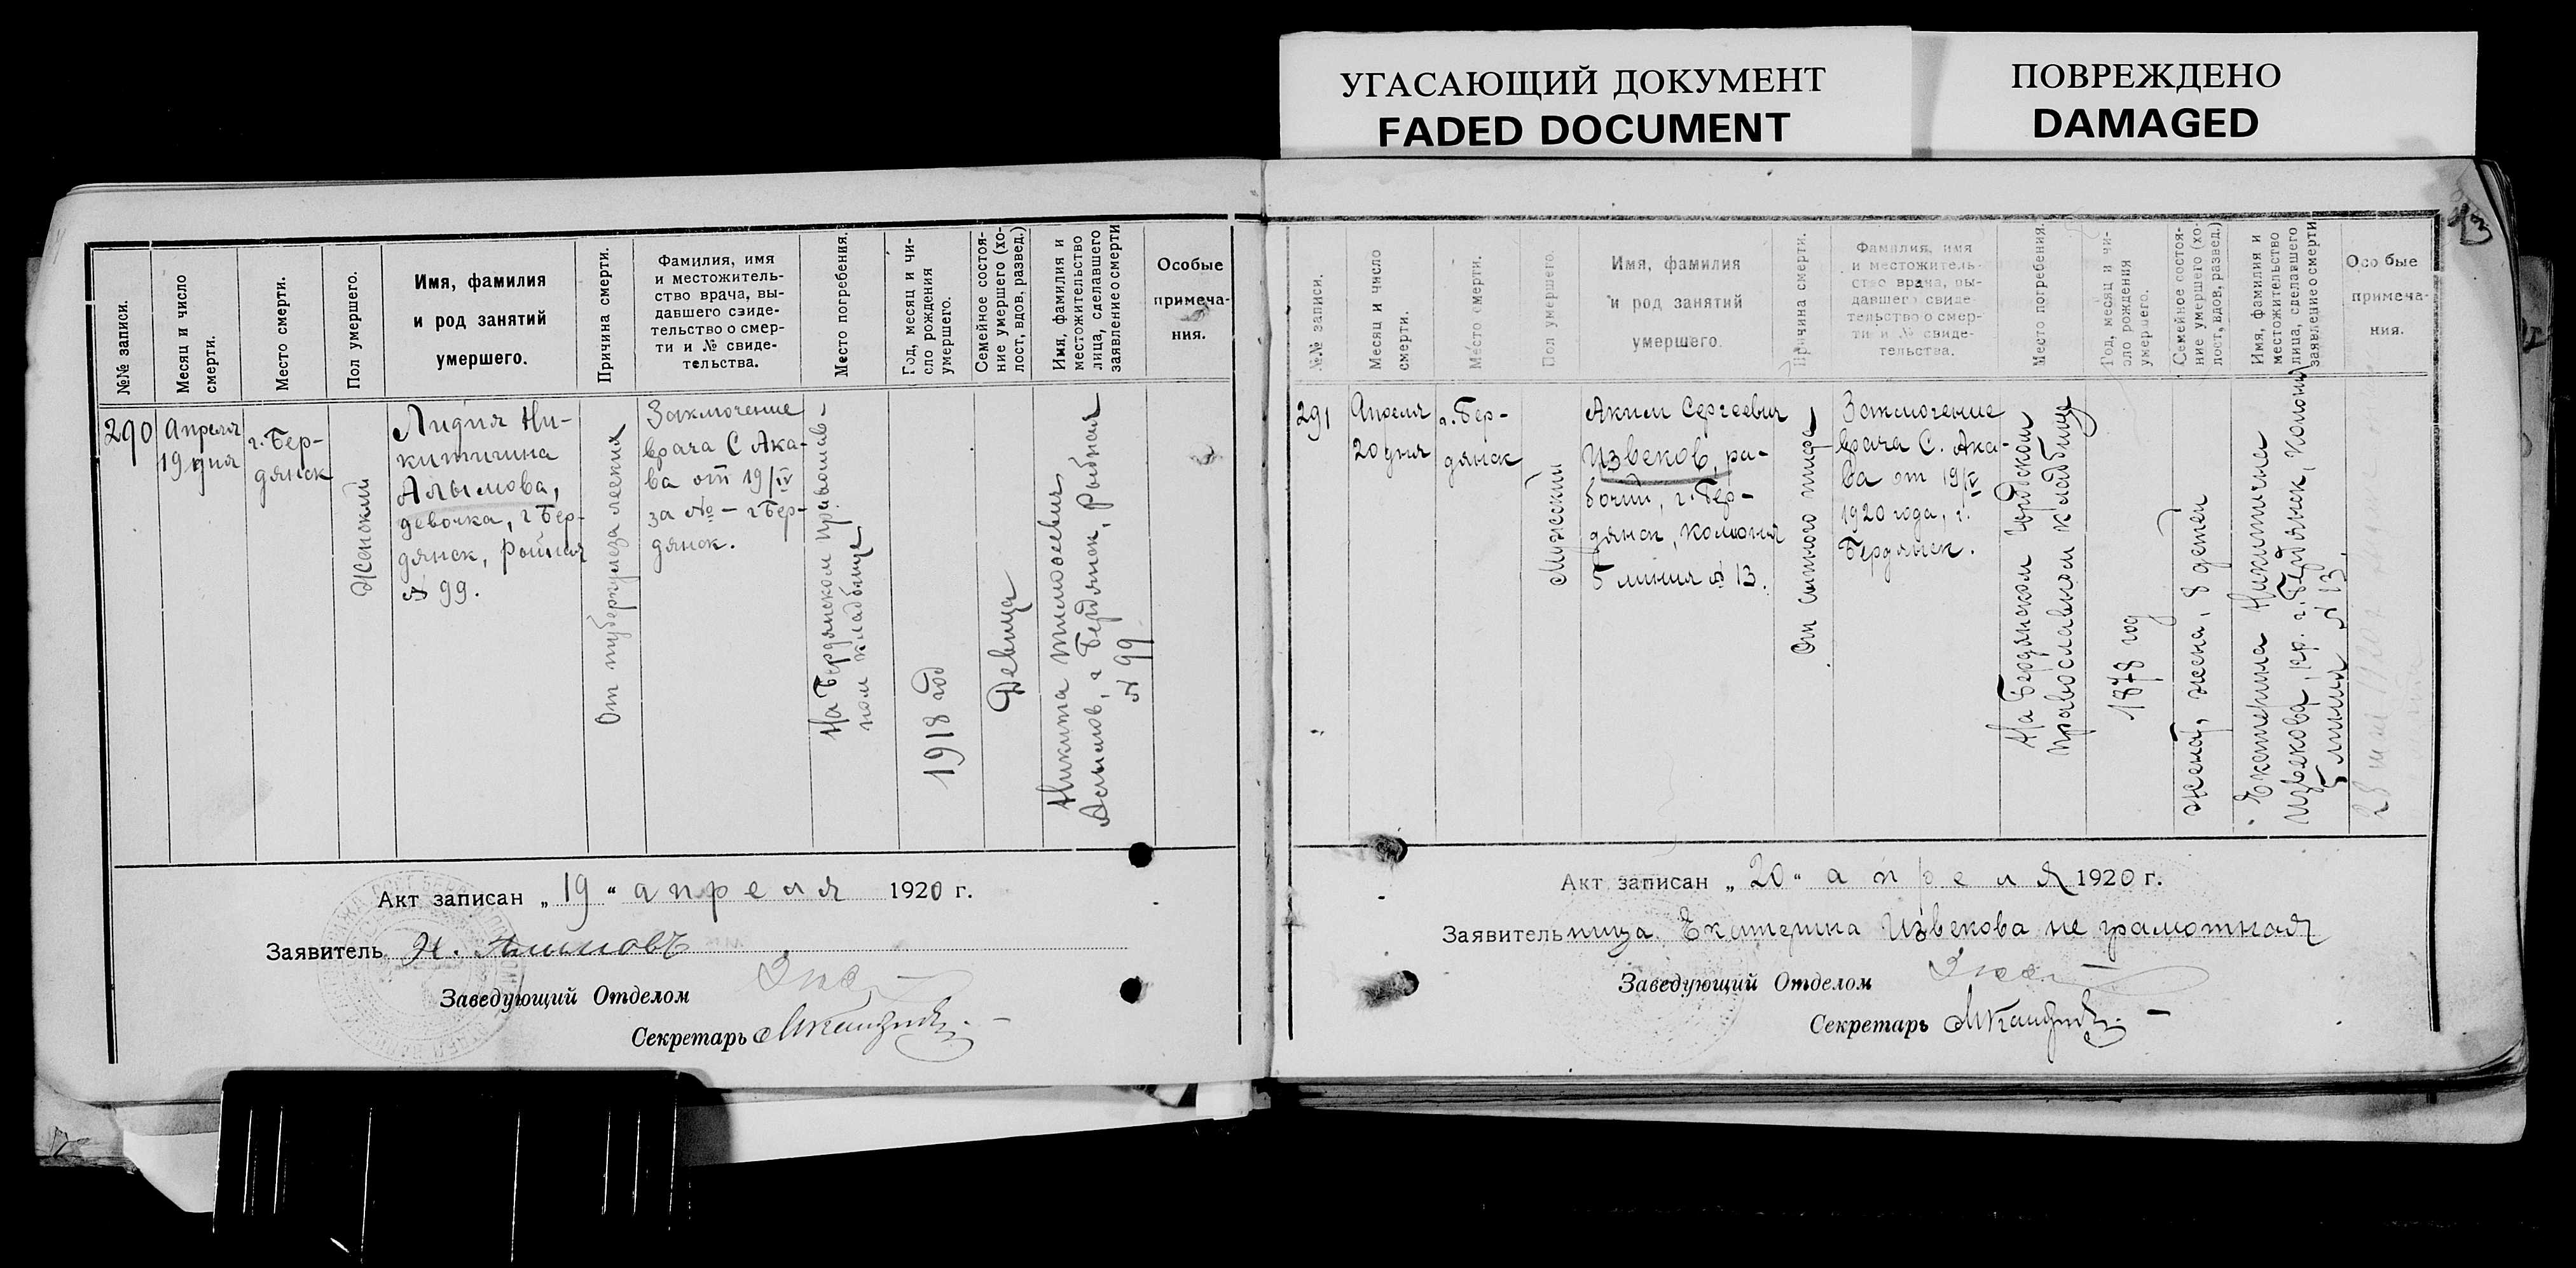 УГАСАЮЩИЙ ДОКУМЕНТ
FADED DOCUMENT
ПОВРЕЖДЕНО
DAMAGED
№№ записи.
Месяц и число
смерти.
Место смерти.
Пол умершего.
Имя, фамилия
и род занятий
умершего.
Причина смерти.
Фамилия, имя
и местожитель-
ство врача, вы-
давшего свиде-
тельство о смер-
ти и № свиде-
тельства.
Место погребения.
Год, месяц и чи-
сло рождения
умершего.
Семейное состоя-
ние умершего (хо-
лост, вдов, развед.)
Имя, фамилия и
местожительство
лица, сделавшего
заявление о смерти
Особые
примеча-
ния.
290
Апреля
19 дня
г. Бер-
дянск
Женский
Лидия Ни-
китична
Алымова,
девочка, г Бер-
дянск,
№ 99.
От туберкулеза легких
Заключение
врача С Ака-
ва от 19/IV
за № — г Бер-
дянск.
На Бердянском православ-
ном кладбище
1918 год
Девица
Никита
Алымов, г Бердянск,
№ 99
Акт записан „19“ апреля 1920 г.
Заявитель Н. Алымовъ
Заведующий Отделом
Секретарь
№№ записи.
Месяц и число
смерти.
Место смерти.
Пол умершего.
Имя, фамилия
и род занятий
умершего.
Причина смерти.
Фамилия, имя
и местожитель-
ство врача, вы-
давшего свиде-
тельство о смер-
ти и № свиде-
тельства.
Место погребения.
Год, месяц и чи-
сло рождения
умершего.
Семейное состоя-
ние умершего (хо-
лост, вдов, развед.)
Имя, фамилия и
местожительство
лица, сделавшего
заявление о смерти
Особые
примеча-
ния.
291
Апреля
20 дня
г. Бер-
дянск
Мужский
Аким Сергеевич
Извеков, ра-
бочий, г. Бер-
дянск, колония
5 линия № 13.
От сыпного тифа
Заключение
врача С. Ака-
ва от 19/IV
1920 года, г.
Бердянск.
На Бердянском городском
православном кладбище
1878 год
женат, жена, 8 детей
Екатерина Никитична
Извекова, гр. г. Бердянск, колония
5 линия № 13.
Акт записан „20“ апреля 1920 г.
Заявительница Екатерина Извекова не грамотная
Заведующий Отделом
Секретарь